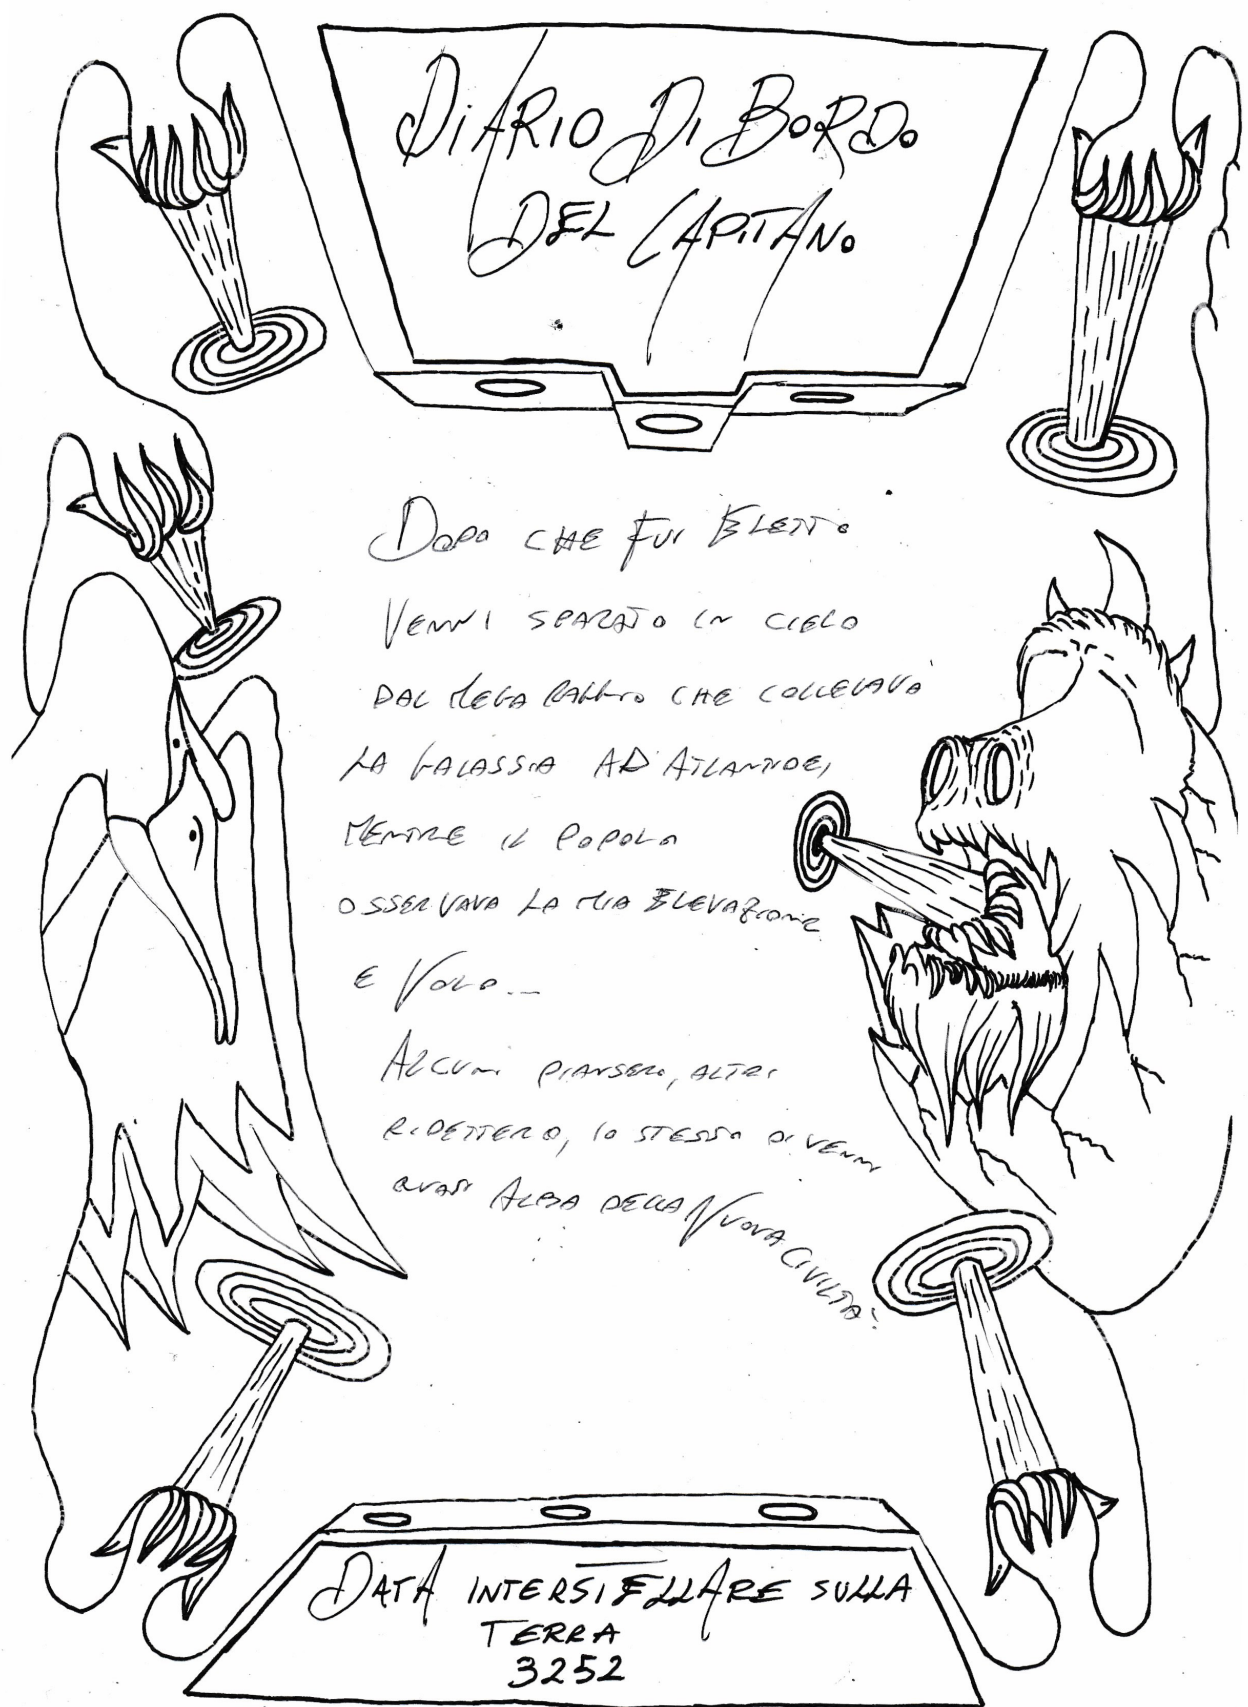 DIARIO DI BORDO
DEL CAPITANO
DOPO CHE FUI ELETTO
VENNI SPARATO IN CIELO
DAL MEGA RAGGIO CHE COLLEGAVA
LA GALASSIA AD ATLANTIDE,
MENTRE IL POPOLO
OSSERVAVA LA MIA ELEVAZIONE
E VOLO...
ALCUNI PIANSERO, ALTRI
RIDETTERO, IO STESSO DIVENNI
QUASI ALBA DELLA NUOVA CIVILTÀ.
DATA INTERSTELLARE SULLA
TERRA
3252